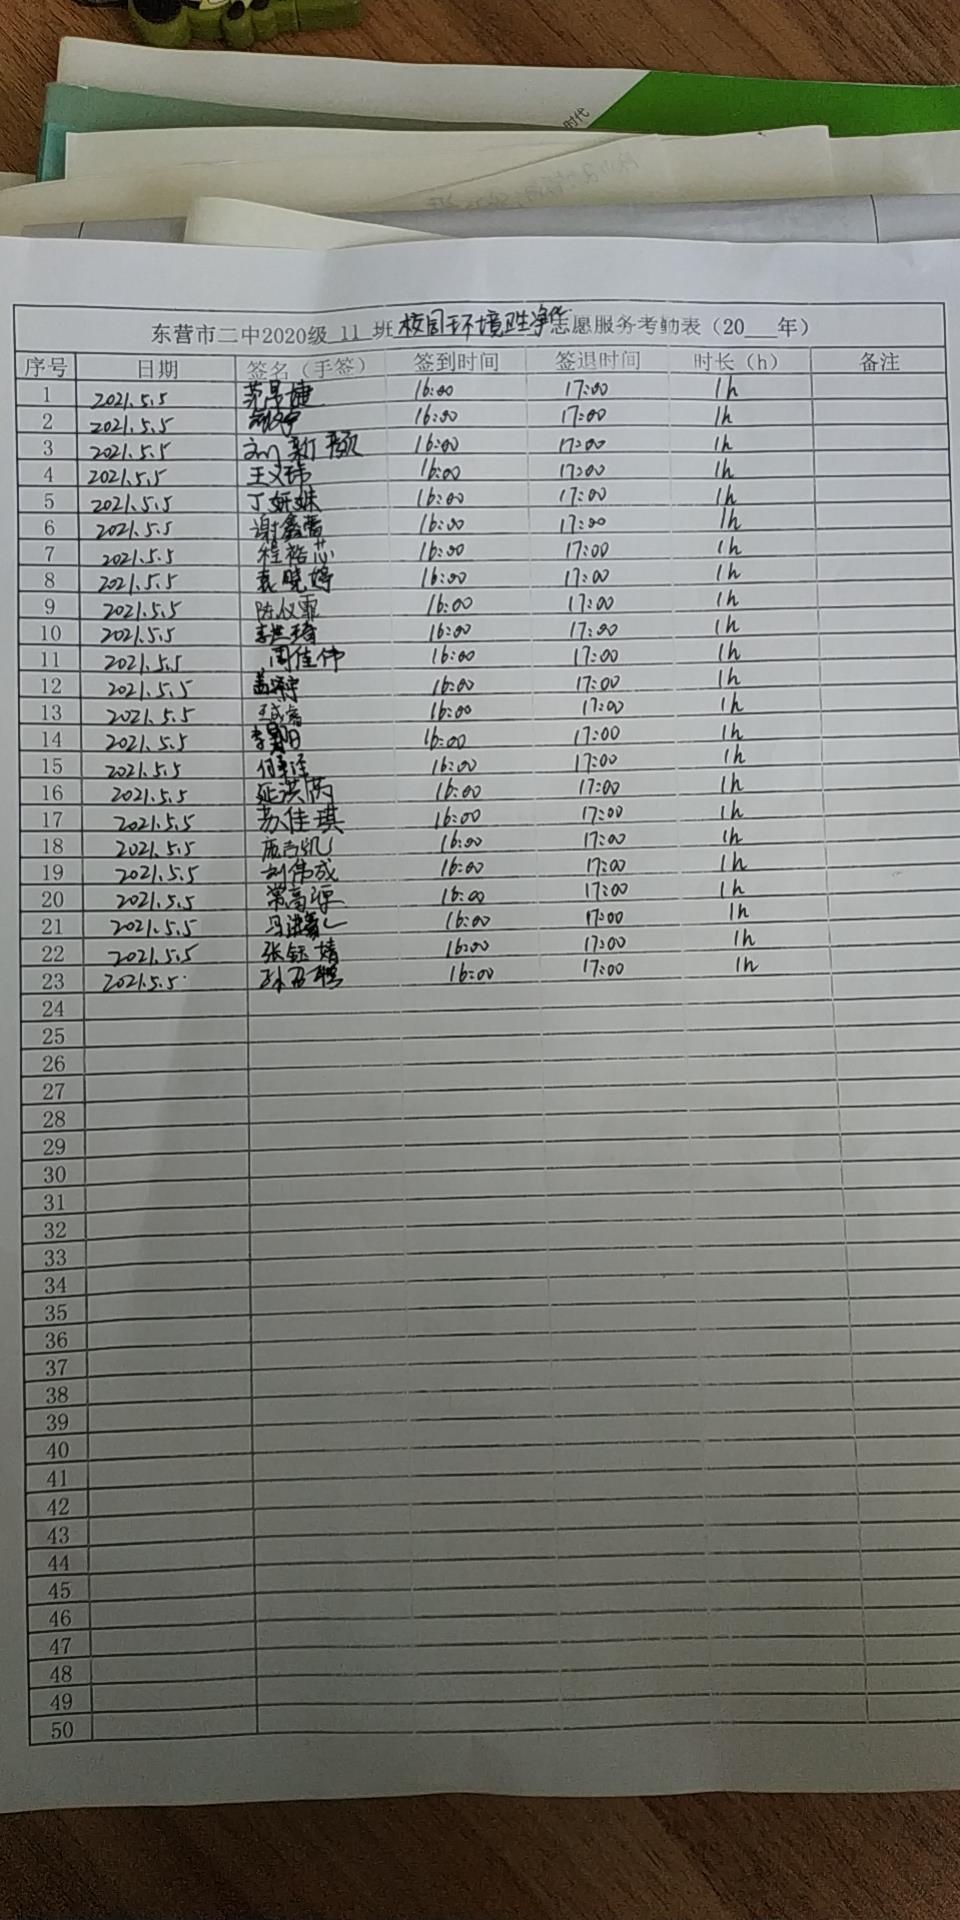 时代
东营市二中2020级 11 班校园环境卫生净化志愿服务考勤表（20___年）
序号 日期 签名（手签） 签到时间 签退时间 时长（h） 备注
1 2021.5.5 16:00 17:00 1h
2 2021.5.5 16:00 17:00 1h
3 2021.5.5 刘新颖 16:00 17:00 1h
4 2021.5.5 王义玮 16:00 17:00 1h
5 2021.5.5 丁妍姝 16:00 17:00 1h
6 2021.5.5 谢鑫蕾 16:00 17:00 1h
7 2021.5.5 程裕芯 16:00 17:00 1h
8 2021.5.5 袁晓婷 16:00 17:00 1h
9 2021.5.5 陈仪霏 16:00 17:00 1h
10 2021.5.5 16:00 17:00 1h
11 2021.5.5 周佳伟 16:00 17:00 1h
12 2021.5.5 16:00 17:00 1h
13 2021.5.5 16:00 17:00 1h
14 2021.5.5 16:00 17:00 1h
15 2021.5.5 16:00 17:00 1h
16 2021.5.5 16:00 17:00 1h
17 2021.5.5 苏佳琪 16:00 17:00 1h
18 2021.5.5 16:00 17:00 1h
19 2021.5.5 刘伟成 16:00 17:00 1h
20 2021.5.5 常高源 16:00 17:00 1h
21 2021.5.5 16:00 17:00 1h
22 2021.5.5 张钰婧 16:00 17:00 1h
23 2021.5.5 16:00 17:00 1h
24
25
26
27
28
29
30
31
32
33
34
35
36
37
38
39
40
41
42
43
44
45
46
47
48
49
50